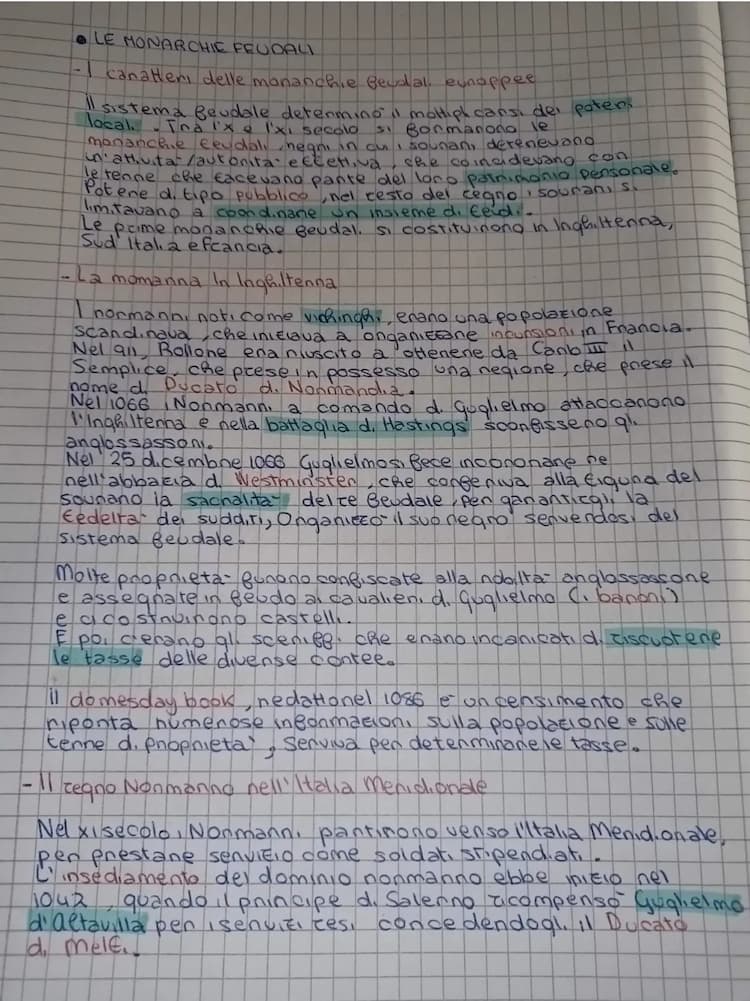 • LE MONARCHIE FEUDALI
- I caratteri delle monarchie feudali europpee
Il sistema feudale determinò il moltiplicarsi dei poteri
locali. Tra l'x e l'xi secolo si formarono le
monarchie feudali, regni in cui i sovrani detenevano
un'attività/autorità effettiva, che coincidevano con
le terre che facevano parte del loro patrimonio personale.
Potere di tipo pubblico, nel resto del regno i sovrani si
limitavano a coordinare un insieme di feudi.
Le prime monarchie feudali si costituirono in Inghilterra,
Sud Italia e francia.
- La momanna In Inghilterra
I normanni noti come vichinghi, erano una popolazione
scandinava, che iniziava a organizzare incursioni in Francia.
Nel 911, Rollone era riuscito a ottenere da Carlo III il
Semplice, che prese in possesso una regione, che prese il
nome di Ducato di Normandia.
Nel 1066 i Normanni a comando di Guglielmo attaccarono
l'Inghilterra e nella battaglia di Hastings sconfissero gli
anglossassoni.
Nel 25 dicembre 1066 Guglielmo si fece incoronare re
nell'abbazia di Westminster, che conferiva alla figura del
sovrano la sacralità delre feudale, per garantirgli la
fedeltà dei sudditi, Organizzò il suo regno servendosi del
sistema feudale.
Molte proprietà furono confiscate alla nobiltà anglossassone
e assegnate in feudo ai cavalieri di Guglielmo (i baroni)
e ci costruirono castelli.
E poi c'erano gli sceriffi che erano incaricati di riscuotere
le tasse delle diverse contee.
il domesday book, redatto nel 1086 è un censimento che
riporta numerose informazioni sulla popolazione e sulle
terre di proprietà, serviva per determinare le tasse.
- Il regno Normanno nell'Italia Meridionale
Nel xi secolo i Normanni partirono verso l'Italia Meridionale,
per prestare servizio come soldati stipendiati.
L'insediamento del dominio normanno ebbe inizio nel
1042, quando il principe di Salerno ricompensò Guglielmo
d'altavilla per i servizi resi concedendogli il Ducato
di Melfi.